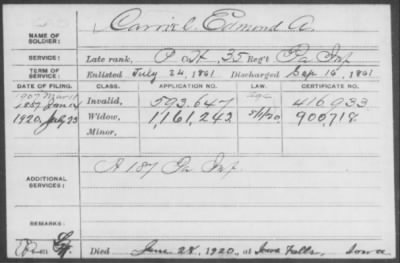 NAME OF SOLDIER: Carriel, Edmond A.
SERVICE: Late rank, P & H, 35 Reg't Pa Inf
TERM OF SERVICE: Enlisted July 24, 1861 Discharged Sep 16, 1861
DATE OF FILING. CLASS. APPLICATION NO. LAW. CERTIFICATE NO.
1907 Mar
1887 Jan 24 Invalid, 593.647 age 416933
1920 July 23 Widow, 1,161,242 5/1/20 900718
Minor,
ADDITIONAL SERVICES: A 187 Pa Inf
REMARKS:
Died June 28, 1920, at Iowa Falls, Iowa